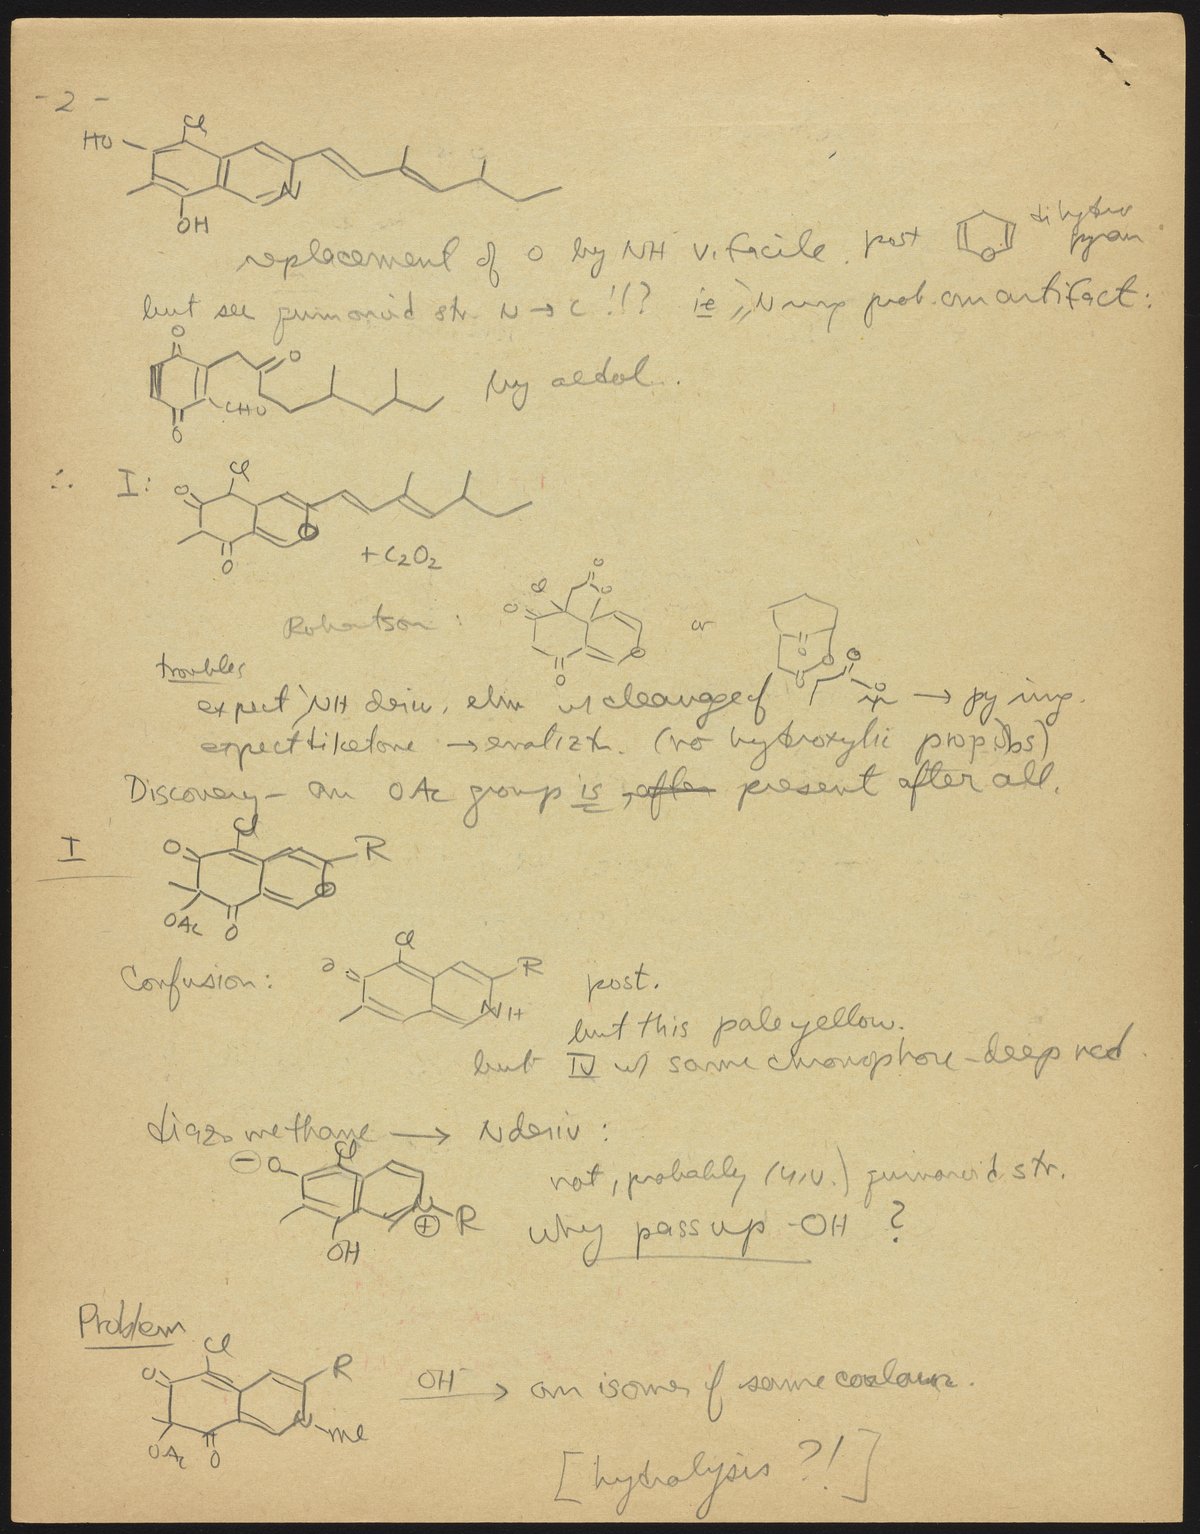 - 2 -
Cl
HO
N
OH
dihydro
replacement of O by NH v. facile. post O pyran
but see quinonoid str. N → C !!? ie >N ring prob. an artifact:
O
O
CHO
by aldol.
O
∴ I: Cl
O
O
O
+ C2O2
Robertson: Cl O O O O O or O O O
troubles
expect >NH deriv. elim w cleavage of O → py ring.
expect diketone → enolizn. (no hydroxylic props)
Discovery – an OAc group is, after present after all.
I
Cl
O
R
O
OAc O
Confusion: O Cl R NH post.
but this pale yellow.
but IV w/ same chromophore – deep red.
diazomethane → N deriv:
Cl
⊖ O
N
⊕ R
OH
not, probably (u.v.) quinonoid str.
why pass up -OH ?
Problem
Cl
O
R
N-Me
OAc O
OH⁻ → an isomer of same colour.
[hydrolysis ?!]